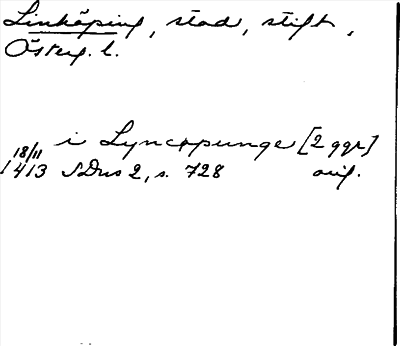 Linköping, stad, stift,
Österg. l.
i Lyncopunge [2 ggr]
18/11
1413 SDns 2, s. 728 orig.